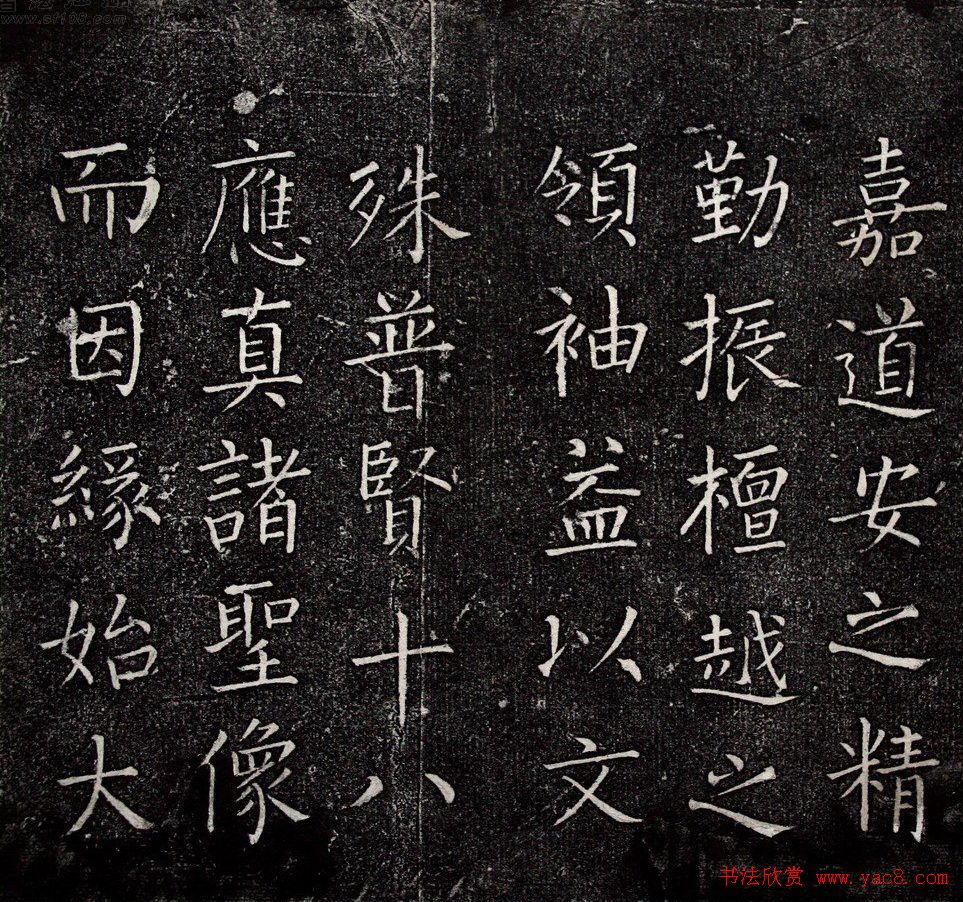 嘉道安之精
勤振檀越之
領袖益以文
殊普賢十八
應真諸聖像
而因緣始大
书法欣赏 www.yac8.com